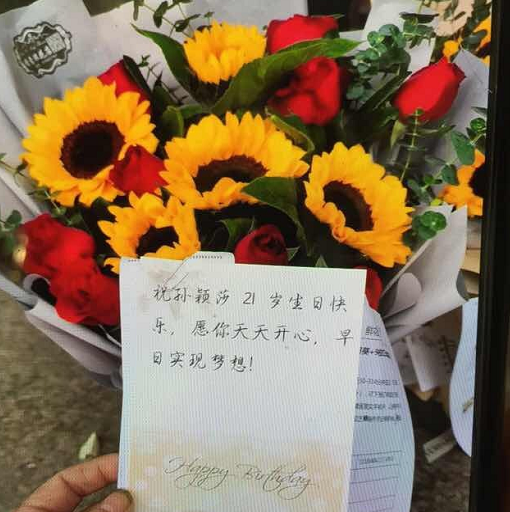 祝孙颖莎 21 岁生日快
乐，愿你天天开心，早
日实现梦想!
Happy Birthday